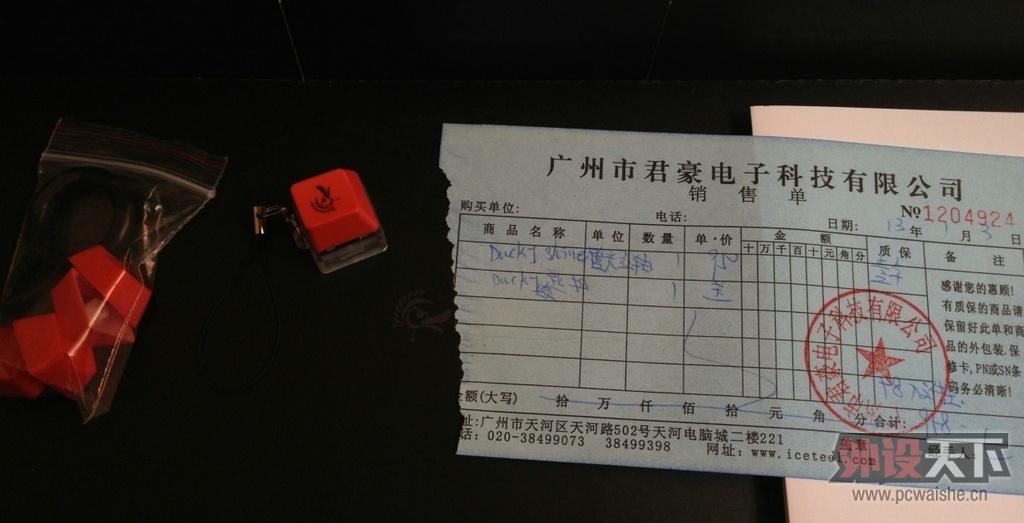 广州市君豪电子科技有限公司
销售单
№1204924
购买单位: 电话: 日期: 13年1月3日
商品名称 单位 数量 单·价 金额 质保 备注
十万千百十元角分
Ducky Shine 1
Ducky 1
感谢您的惠顾!
有质保的商品请
保留好此单和商
品的外包装.保
修卡,PN或SN条
码务必清晰!
君豪电子科技有限公司
金额(大写) 拾 万 仟 佰 拾 元 角 分 合计:
址:广州市天河区天河路502号天河电脑城二楼221 盖章
话: 020-38499073 38499398 网址: www.iceteel.com 经手人:
外设天下
www.pcwaishe.cn